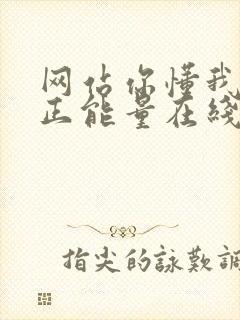 网站你懂我
正能量在线
指尖的詠歎調